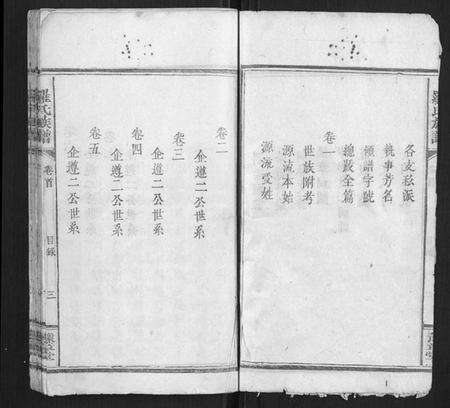 各支私派
執事芳名
領譜字號
總跋全篇
卷一
世族附考
源流本始
源流受姓
卷二
企遵二公世系
卷三
企遵二公世系
卷四
企遵二公世系
卷五
企遵二公世系
羅氏族譜
卷首
目錄
三